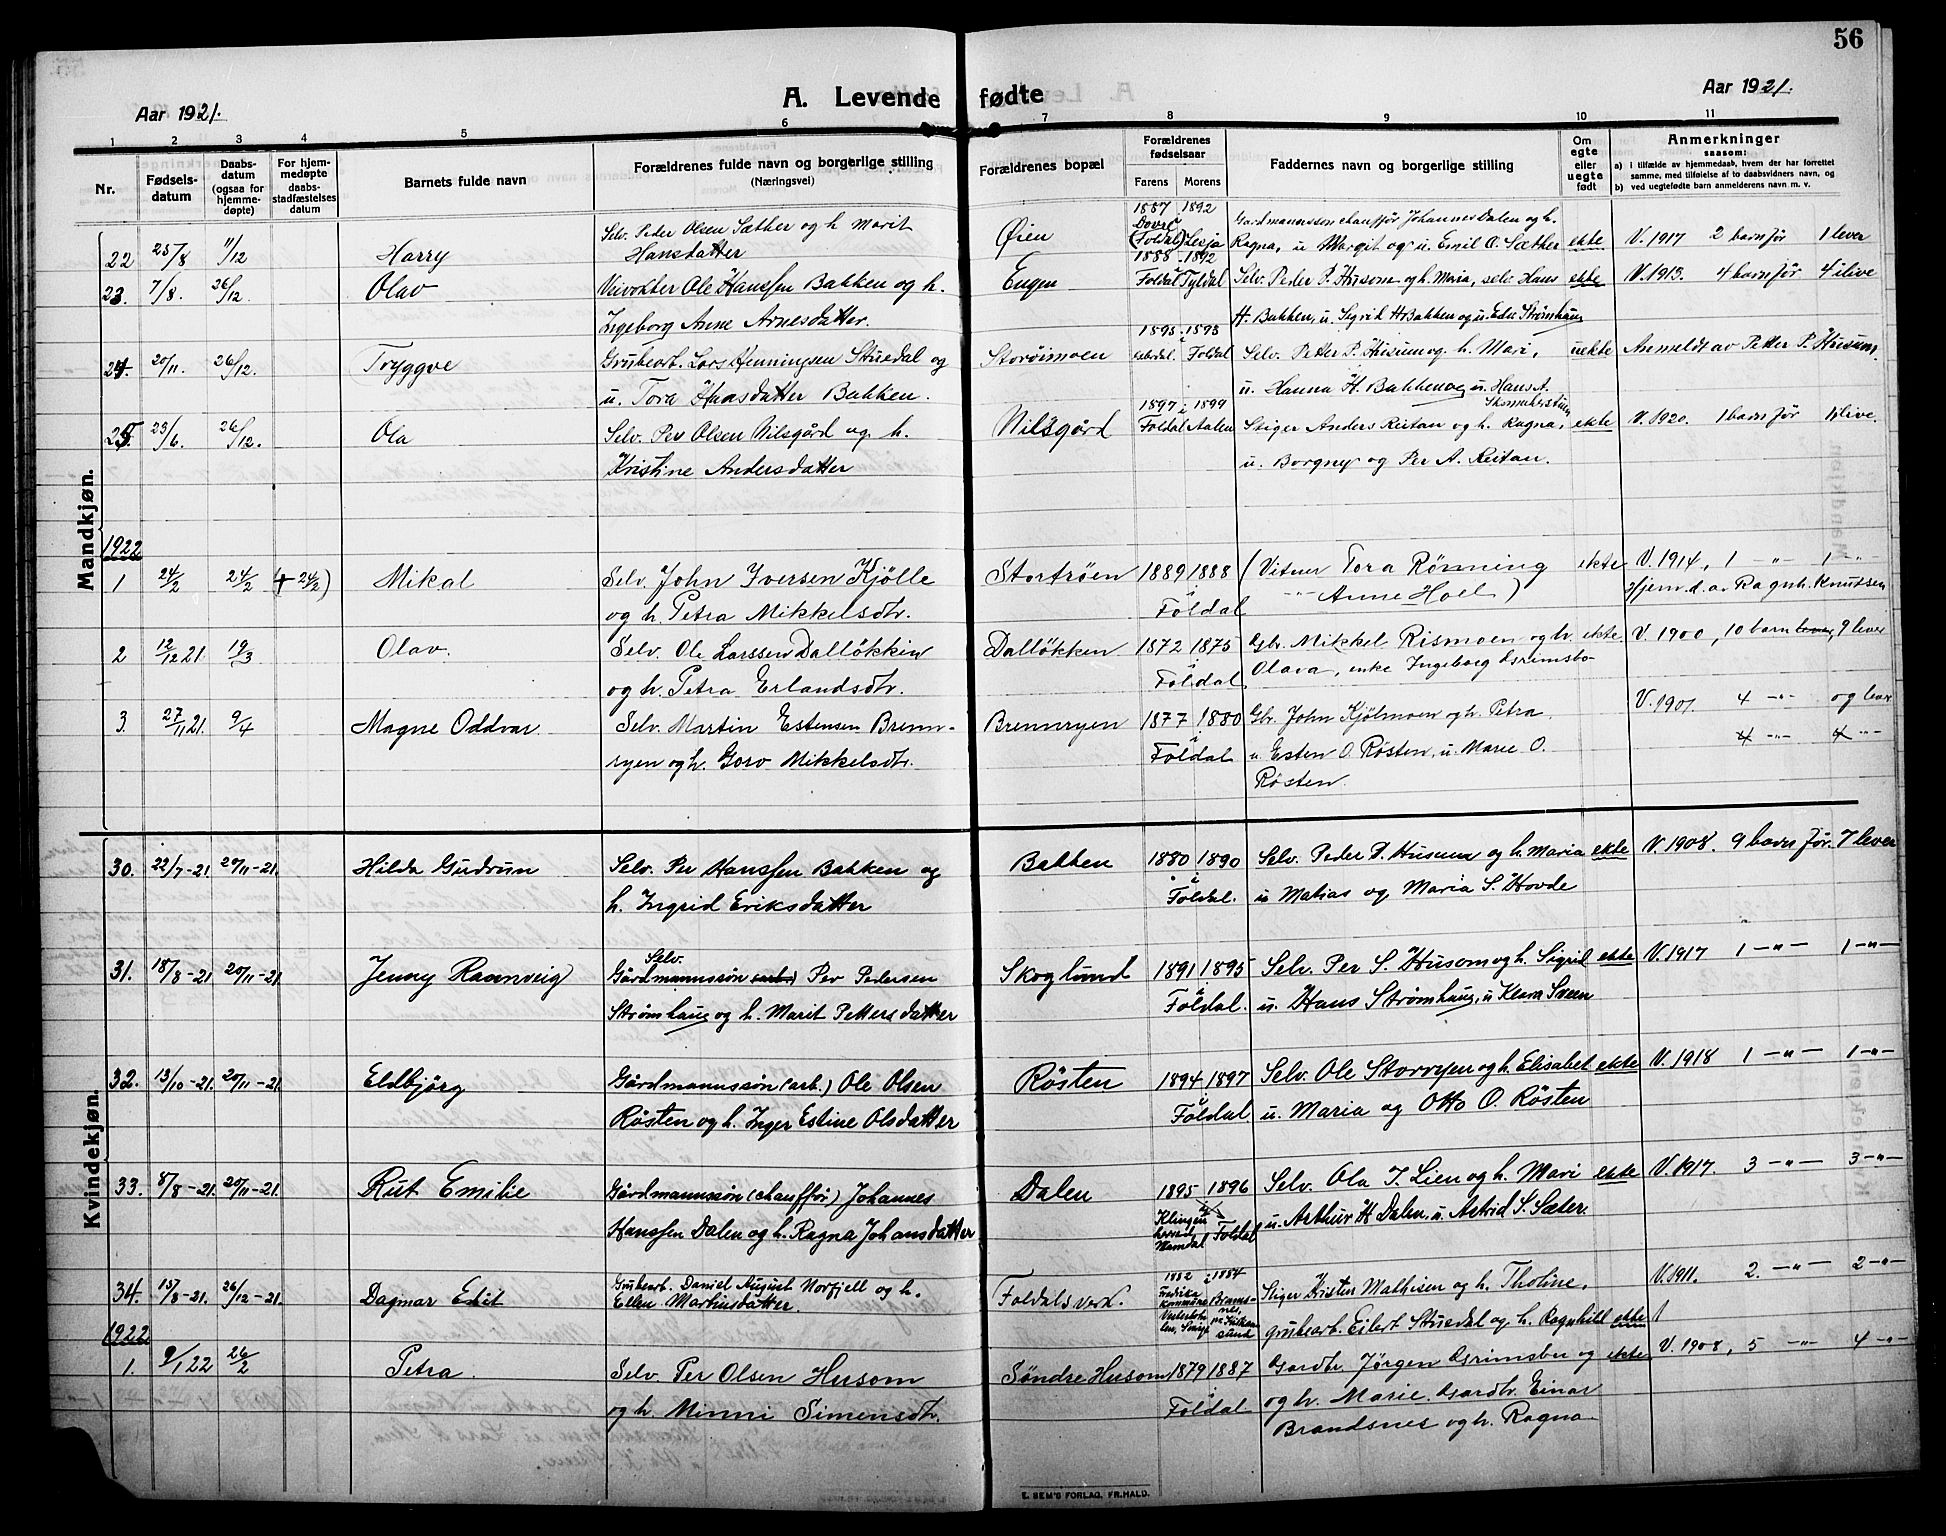 56
A. Levende fødte
Aar 1921.
Aar 1921.
1 2 3 4 5 6 7 8 9 10 11
Nr.
Fødsels-
datum
Daabs-
datum
(ogsaa for
hjemme-
døpte)
For hjem-
medøpte
daabs-
stadfæstelses
datum
Barnets fulde navn
Forældrenes fulde navn og borgerlige stilling
(Næringsvei)
Forældrenes bopæl
Forældrenes
fødselsaar
Farens Morens
Faddernes navn og borgerlige stilling
Om
egte
eller
uegte
født
Anmerkninger
saasom:
a) i tilfælde av hjemmedaab, hvem der har forrettet
samme, med tilføielse af to daabsvidners navn, og
b) ved uegtefødte barn anmelderens navn m. v.
Mandkjøn.
22 25/8 11/12 Harry
Selv. Peder Olsen Sæther og h. Marit
Hansdatter
Øien
1887 1892
Dovre
(Foldal) Lesja
Gardmannsson chauffør Johannes Dalen og h.
Ragna, u Margit og u. Emil O. Sæther
ekte
V. 1917 2 barn før 1 lever
23. 7/8. 26/12 Olav
Ole Hanssen Bakken og h.
Ingeborg Anne Arnesdatter.
Eugen
1888 1892
Foldal Tyldal
Selv. Peder P. Husom og h. Maria, selv. Hans
H. Bakken, u. Sigrid H Bakken og u. Eder Strømhaug
ekte
V. 1913. 4 barn før 4 i live
24. 20/11. 26/12. Tryggve
Grubearb. Lars Henningsen Stuedal og
u. Tora Hansdatter Bakken.
Storøimoen
1898 1898
Foldal
Selv. Petter P. Husum og h. Mari,
u. Hanna H. Bakken og u. Hans A.
uekte
Anmeldt av Petter P. Husum.
25. 23/6. 26/12. Ola
Selv. Per Olsen Nilsgård og h.
Kristine Andersdatter
Nilsgård
1897 1899
Foldal Aalen
Stiger Anders Reitan og h. Ragna,
u. Borgny og Per A. Reitan.
ekte
V. 1920. 1 barn før 1 i live.
1922
1 24/2 24/2 († 24/2) Mikal
Selv. John Iversen Kjølle
og h. Petra Mikkelsdtr.
Stortrøen
1889 1888
i
Foldal
(Vitner Tora Rønning
-"- Anne Hoel)
ekte
V. 1914, 1 -"- 1 -"-
Hjem. d. av Ragnh. Knutsen
2 12/12 21. 19/3 Olav.
Selv. Ole Larssen Dalløkken
og h. Petra Erlandsdtr.
Dalløkken
1872 1875
i
Foldal
Gbr. Mikkel Rismoen og h.
Olava, enke Ingeborg Grimsbo
ekte
V. 1900, 10 barn lever 9 lever
3. 27/11 21. 9/4 Magne Oddvar
Selv. Martin Estensen Brenn-
ryen og h. Goro Mikkelsdtr.
Brennryen
1877 1880
i
Foldal
Gbr. John Kjølmoen og h. Petra
u Esten O. Røsten, u. Marie O.
Røsten.
V. 1901 4 -"- og lever
4 -"- 4 -"-
Kvindekjøn.
30. 22/7-21. 20/11-21. Hilda Gudrun
Selv. Per Hanssen Bakken og
h. Ingrid Eriksdatter
Bakken
1880 1890
i
Foldal.
Selv. Peder P. Husum og h. Maria
u Matias og Maria S. Hovde
ekte
V. 1908. 9 barn før. 7 lever
31. 18/8-21 20/11-21. Jenny Raanveig
Selv.
Gårdmannssøn (arb.) Per Pedersen
Strømhaug og h. Marit Pettersdatter
Skoglund
1891 1895
i
Foldal.
Selv. Per S. Husom og h. Sigrid
u. Hans Strømhaug, u Klara Sveen
ekte
V. 1917 1 -"- 1 -"-
32. 13/10-21. 20/11-21. Eldbjørg
Gårdmannssøn (arb.) Ole Olsen
Røsten og h. Inger Estine Olsdatter
Røsten
1894 1897
i
Foldal.
Selv. Ole Storryen og h. Elisabet
u. Maria og Otto O. Røsten
ekte
V. 1918 1 -"- 1 -"-
33. 8/8-21. 20/11-21. Rut Emilie
Gårdmannssøn (chauffør) Johannes
Hanssen Dalen og h. Ragna Johansdatter
Dalen
1895 1896
Klingen
herred
Namdal Foldal
Selv. Ola J. Lien og h. Mari
u. Arthur H Dalen, u. Astrid S. Sæter.
ekte
V. 1917. 3 -"- 3 -"-
34. 15/8-21. 26/12-21. Dagmar Edit
Grubearb. Daniel August Norfjell og h.
Ellen Martinsdatter.
Foldals verk.
1882 1884
Fredrika
kommune
Stiger Kristen Mathisen og h. Tholine,
grubearb. Eilert Stuedal og h. Ragnhild
ekte
V. 1911. 2. -"- 2 -"-
1922
1. 9/1 22 26/2 Petra.
Selv. Per Olsen Husom
og h. Minni Simensdtr.
Søndre Husom
1879 1887
i
Foldal
Gardbr. Jørgen Grimsbu og
og h. Marie. Gardbr. Einar
Brandsnes og h. Ragna
ekte
V. 1908, 5 -"- 4 -"-
E. SEM'S FORLAG, FR.HALD.